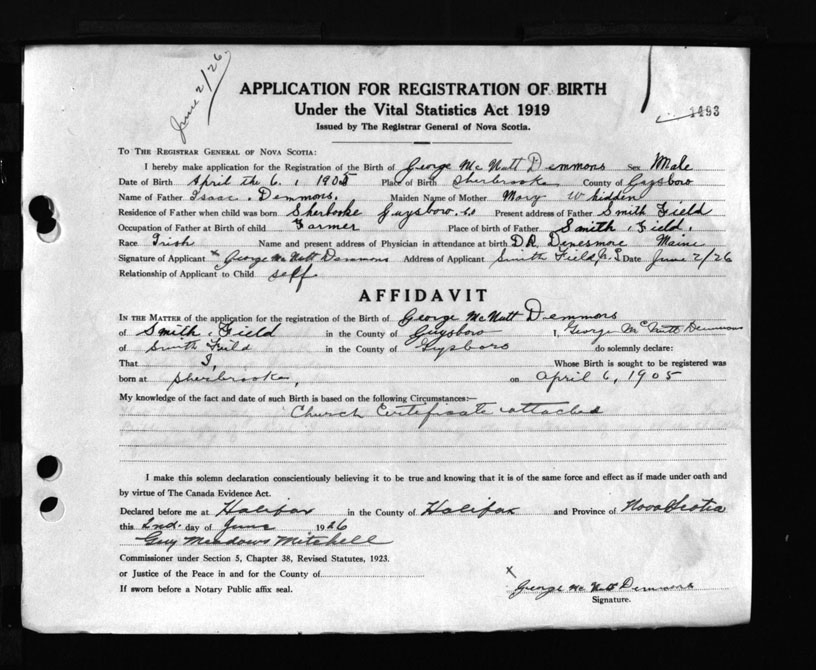 June 2/26
APPLICATION FOR REGISTRATION OF BIRTH
Under the Vital Statistics Act 1919
1493
Issued by The Registrar General of Nova Scotia.
TO THE REGISTRAR GENERAL OF NOVA SCOTIA:
I hereby make application for the Registration of the Birth of George Mc Nutt Demmons Sex Male
Date of Birth April the 6, 1905 Place of Birth Sherbrooke County of Guysboro
Name of Father Isaac Demmons. Maiden Name of Mother Mary Whidden
Residence of Father when child was born Sherbooke Guysboro. Co Present address of Father Smith Field
Occupation of Father at Birth of child Farmer Place of birth of Father Smith Field.
Race Irish Name and present address of Physician in attendance at birth DR. Dinesmore Maine
Signature of Applicant x George Mc Nutt Demmons Address of Applicant Smith Field, N.S Date June 2/26
Relationship of Applicant to Child self
AFFIDAVIT
IN THE MATTER of the application for the registration of the Birth of George McNutt Demmons
of Smith Field in the County of Guysboro I, George Mc Nutt Demmons
of Smith Field in the County of Gysboro do solemnly declare:
That I, Whose Birth is sought to be registered was
born at Sherbrooke, on April 6, 1905
My knowledge of the fact and date of such Birth is based on the following Circumstances:—
Church Certificate attached
I make this solemn declaration conscientiously believing it to be true and knowing that it is of the same force and effect as if made under oath and
by virtue of The Canada Evidence Act.
Declared before me at Halifax in the County of Halifax and Province of Nova Scotia
this 2nd. day of June 1926
Guy Meadows Mitchell
Commissioner under Section 5, Chapter 38, Revised Statutes, 1923.
or Justice of the Peace in and for the County of
If sworn before a Notary Public affix seal.
x George Mc Nutt Demmons
Signature.